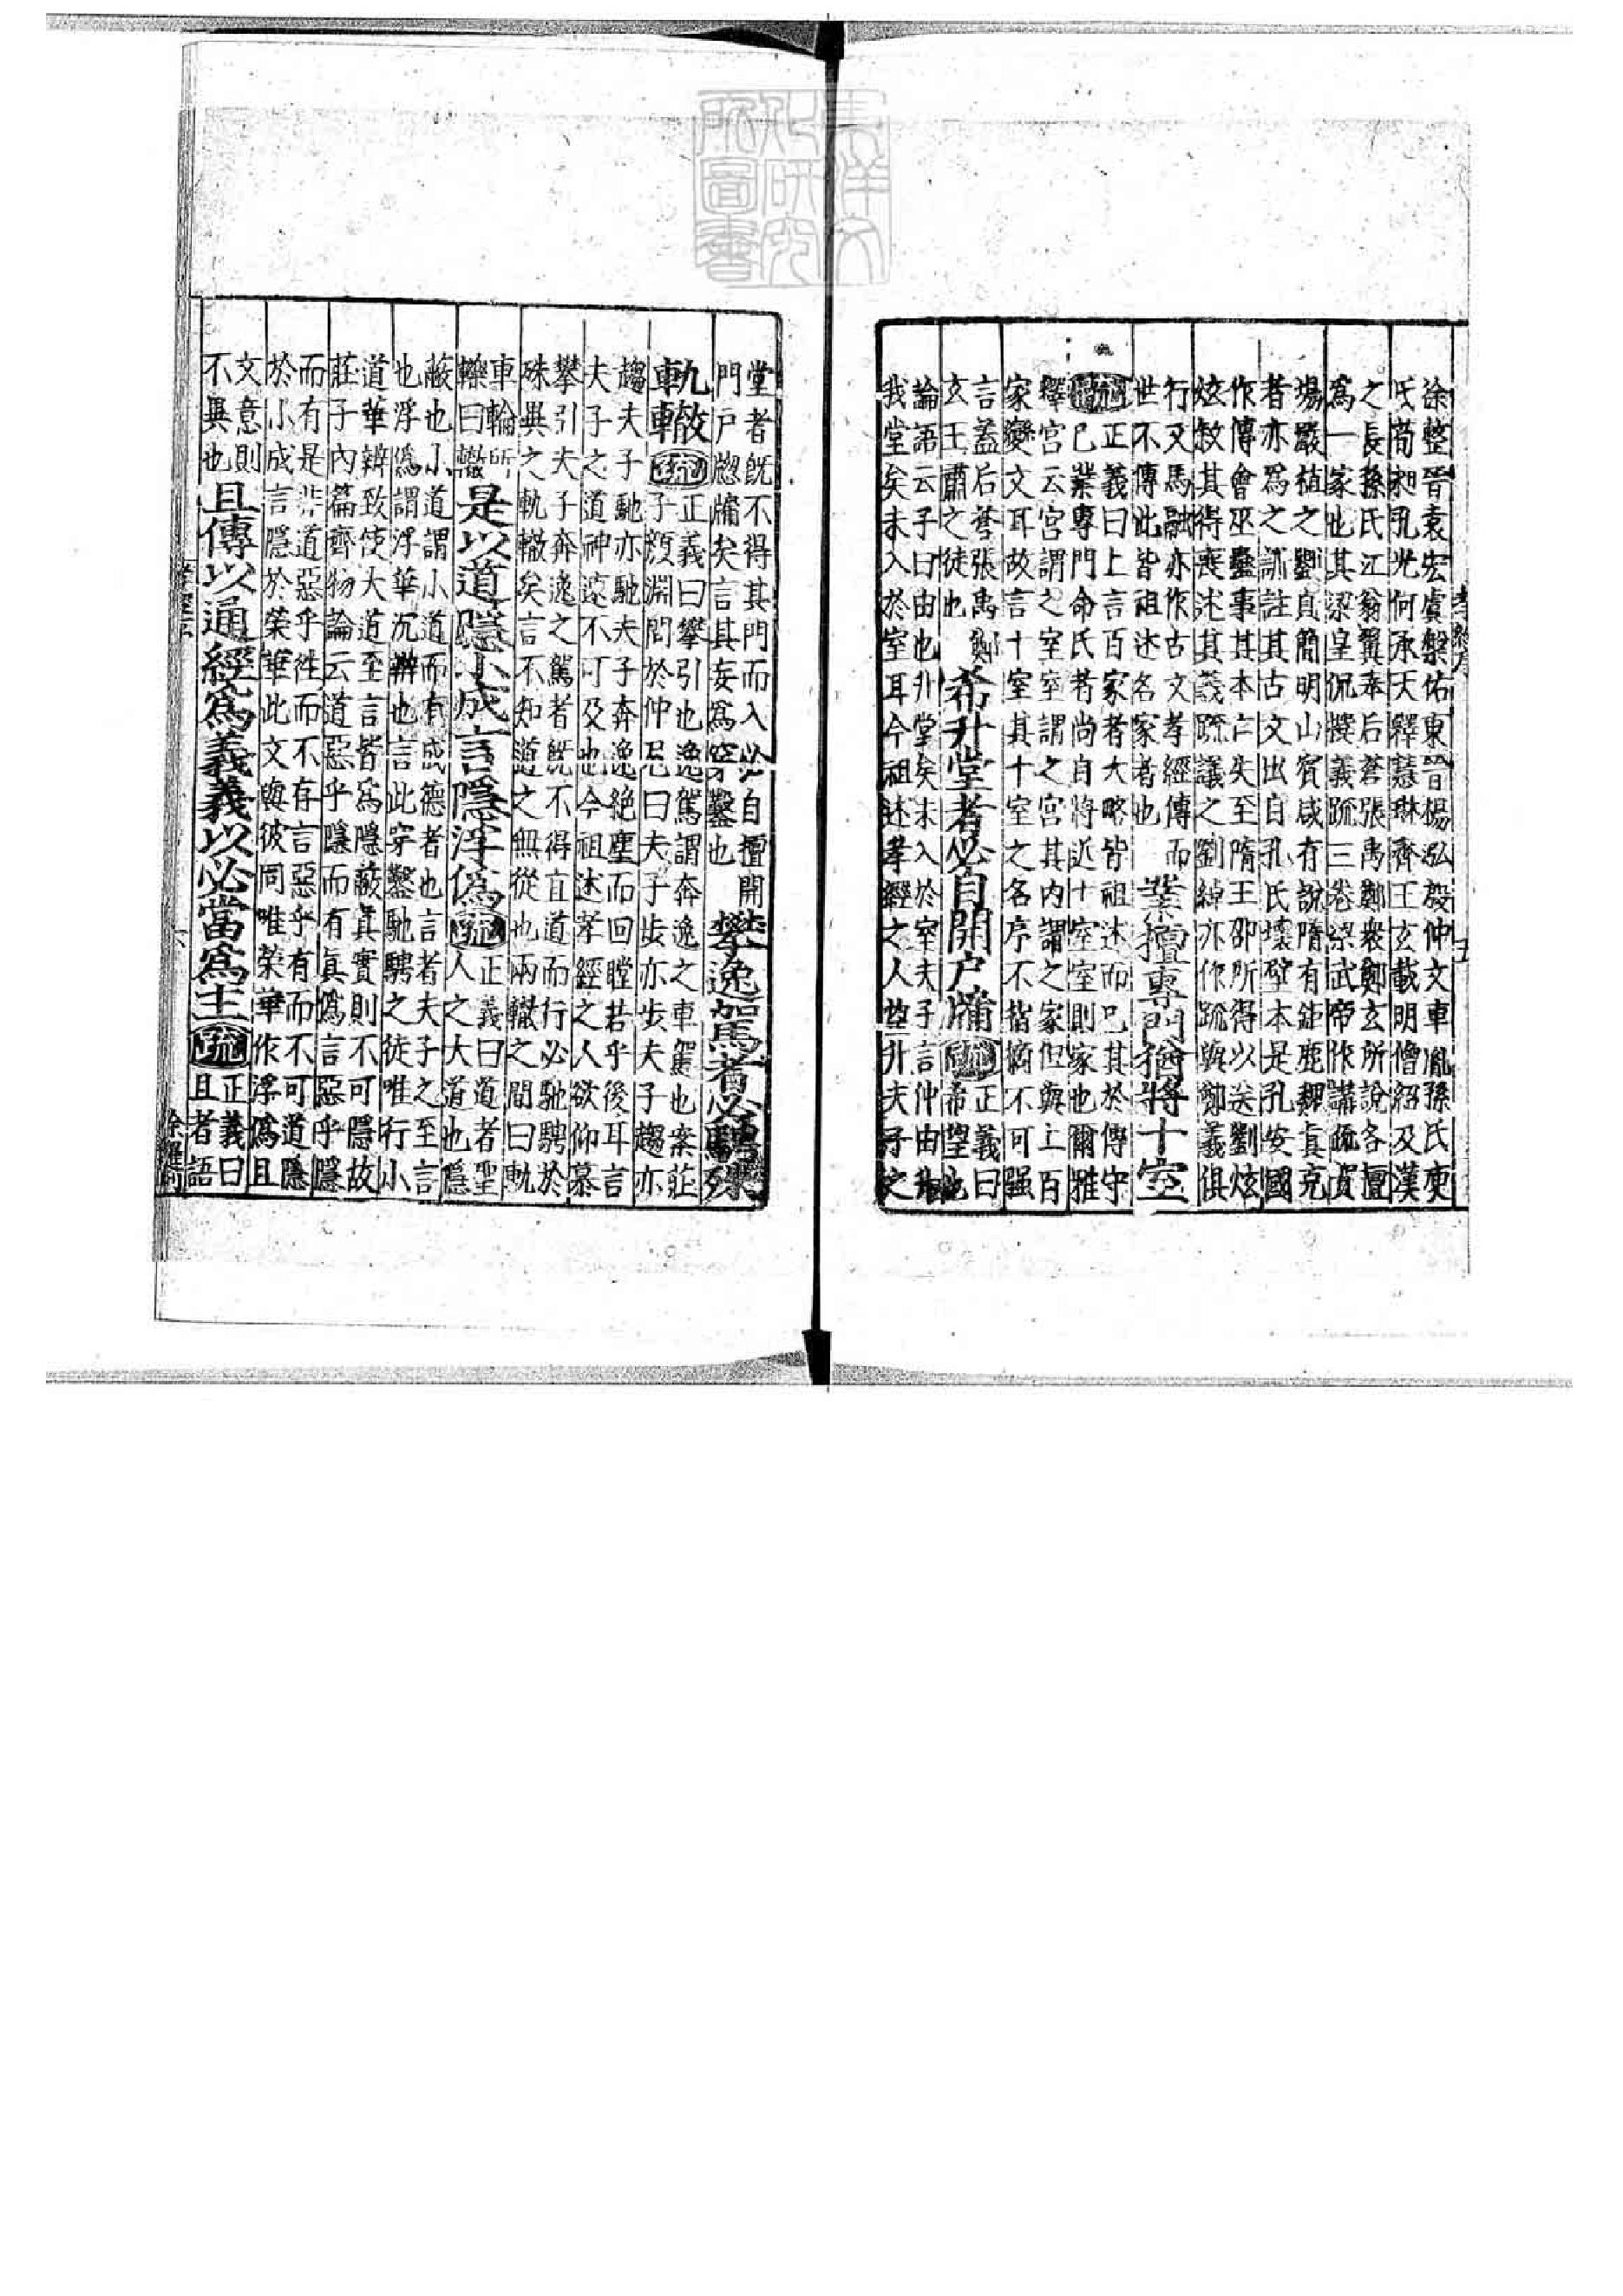 徐整晉袁宏虞槃佑東晉楊泓殷仲文車胤孫氏庾
氏荀昶孔光何承天釋慧琳齊王玄載明僧紹及漢
之長孫氏江翁翼奉后蒼張禹鄭衆鄭玄所說各擅
爲一家也其梁皇侃撰義疏三卷梁武帝作講疏賀
瑒嚴植之劉貞簡明山賓咸有說隋有鉅鹿魏真克
者亦爲之訓註其古文出自孔氏壞壁本是孔安國
作傳會巫蠱事其本亡失至隋王邵所得以送劉炫
炫敘其得喪述其義疏議之劉綽亦作疏與鄭義俱
行又馬融亦作古文孝經傳而
世不傳此皆祖述名家者也
業擅專門猶將十室
疏正義曰上言百家者大略皆祖述而已其於傳守
己業專門命氏者尚自將近十室室則家也爾雅
釋宮云宮謂之室室謂之宮其內謂之家但與上百
家變文耳故言十室其十室之名序不指摘不可强
言蓋后蒼張禹鄭
玄王肅之徒也
希升堂者必自開戶牖
疏正義曰
希望也
論語云子曰由也升堂矣未入於室夫子言仲由升
我堂矣未入於室耳今祖述孝經之人望升夫子之
孝經序
五
堂者既不得其門而入必自擅開
門戶牕牖矣言其妄爲穿鑿也
攀逸駕者必騁殊
軌轍
疏正義曰攀引也逸駕謂奔逸之車駕也案莊
子顏淵問於仲尼曰夫子步亦步夫子趨亦
趨夫子馳亦馳夫子奔逸絕塵而回瞠若乎後耳言
夫子之道神速不可及也今祖述孝經之人欲仰慕
攀引夫子奔逸之駕者既不得直道而行必馳騁於
殊異之軌轍矣言不知道之無從也兩轍之間曰軌
車輪所
轢曰轍
是以道隱小成言隱浮僞
疏正義曰道者聖
人之大道也隱
蔽也小道謂小道而有成德者也言者夫子之至言
也浮僞謂浮華沉辨也言此穿鑿馳騁之徒唯行小
道華辨致使大道至言皆爲隱蔽其實則不可隱故
莊子內篇齊物論云道惡乎隱而有真僞言惡乎隱
而有是非道惡乎往而不存言惡乎有而不可道隱
於小成言隱於榮華此文與彼同唯榮華作浮僞且
文意則
不異也
且傳以通經爲義義以必當爲主
疏正義曰
且者語